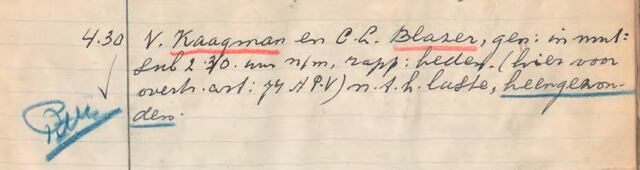 4.30 V. Kaagman en C.L. Blazer, gen: in mut:
sub 2.30. uur n/m, rapp: heden. (hier voor
overtr. art: 74 A P.V) n.t.h. laste, heengezon-
den.